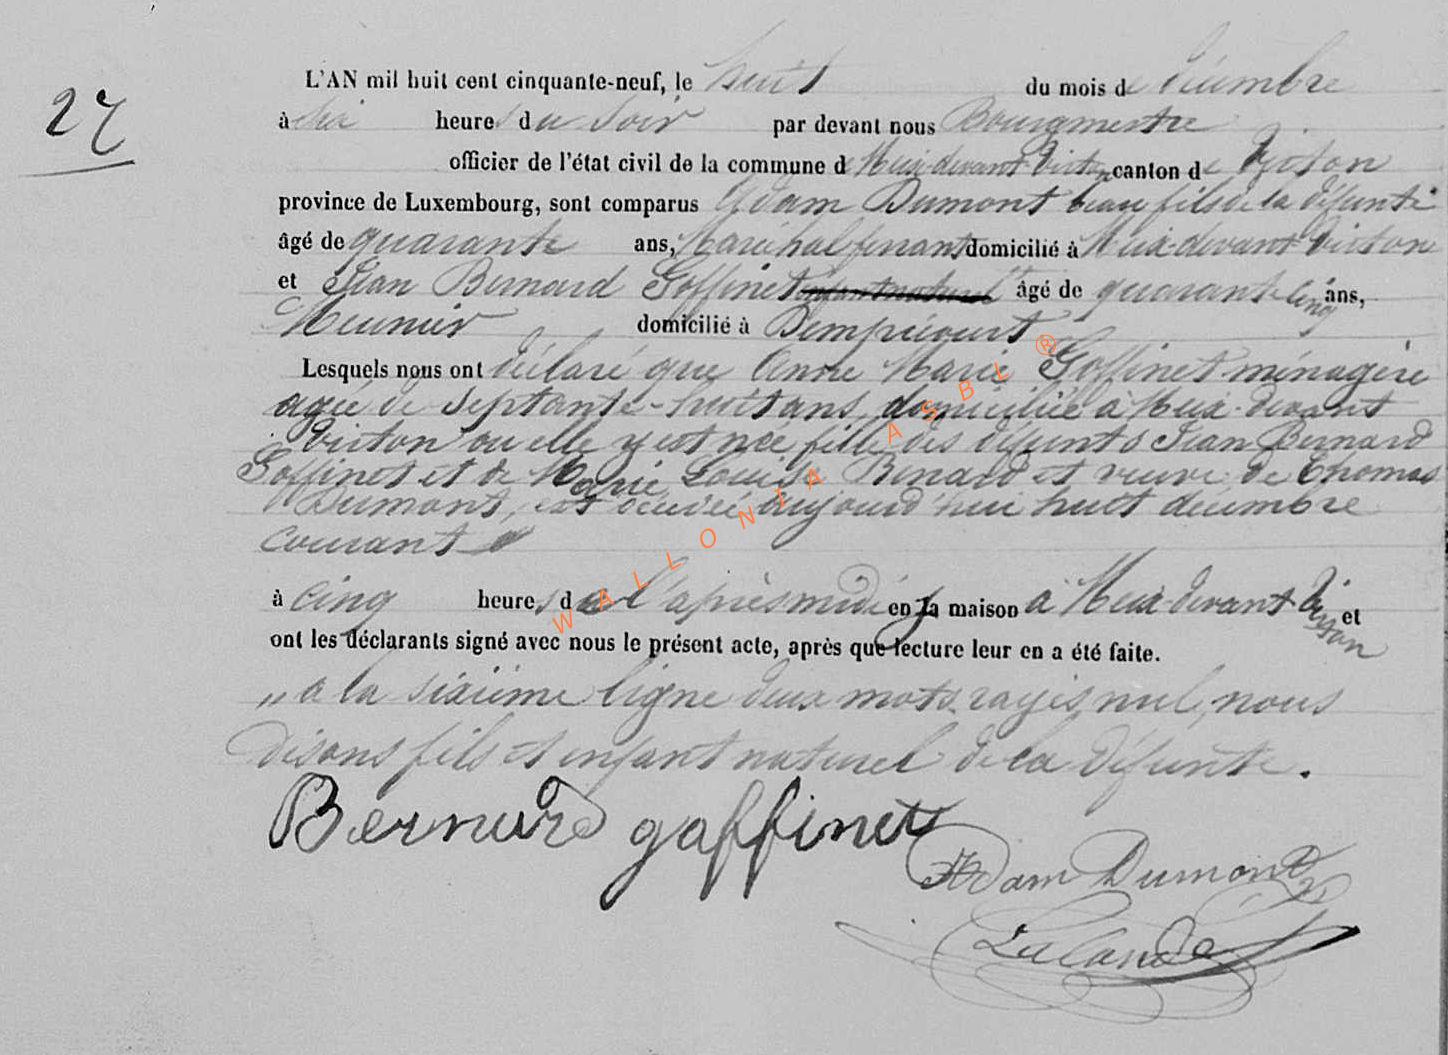 27
L'AN mil huit cent cinquante-neuf, le huit du mois de décembre
à six heures du soir par devant nous Bourgmestre
officier de l'état civil de la commune de Meix-devant-Virton canton de Virton
province de Luxembourg, sont comparus Adam Dumont beau fils de la défunte
âgé de quarante ans, Maréchal ferrant domicilié à Meix-devant-Virton
et Jean Bernard Goffinet enfant naturel âgé de quarante cinq ans,
Meunier domicilié à Dampicourt
Lesquels nous ont déclaré que Anne Marie Goffinet ménagère
agée de septante-huit ans, domiciliée à Meix-devant
Virton ou elle y est née fille des défunts Jean Bernard
Goffinet et de Marie Louise Benard et veuve de Thomas
Dumont, est décédée aujourd'hui huit décembre
courant
à cinq heures de l'après midi en sa maison à Meix devant Virton et
ont les déclarants signé avec nous le présent acte, après que lecture leur en a été faite.
„ a la sixième ligne deux mots rayés nul, nous
disons fils et enfant naturel de la défunte.
Bernard gaffinet
Adam Dumont
Lalande
WALLONIA ASBL ®